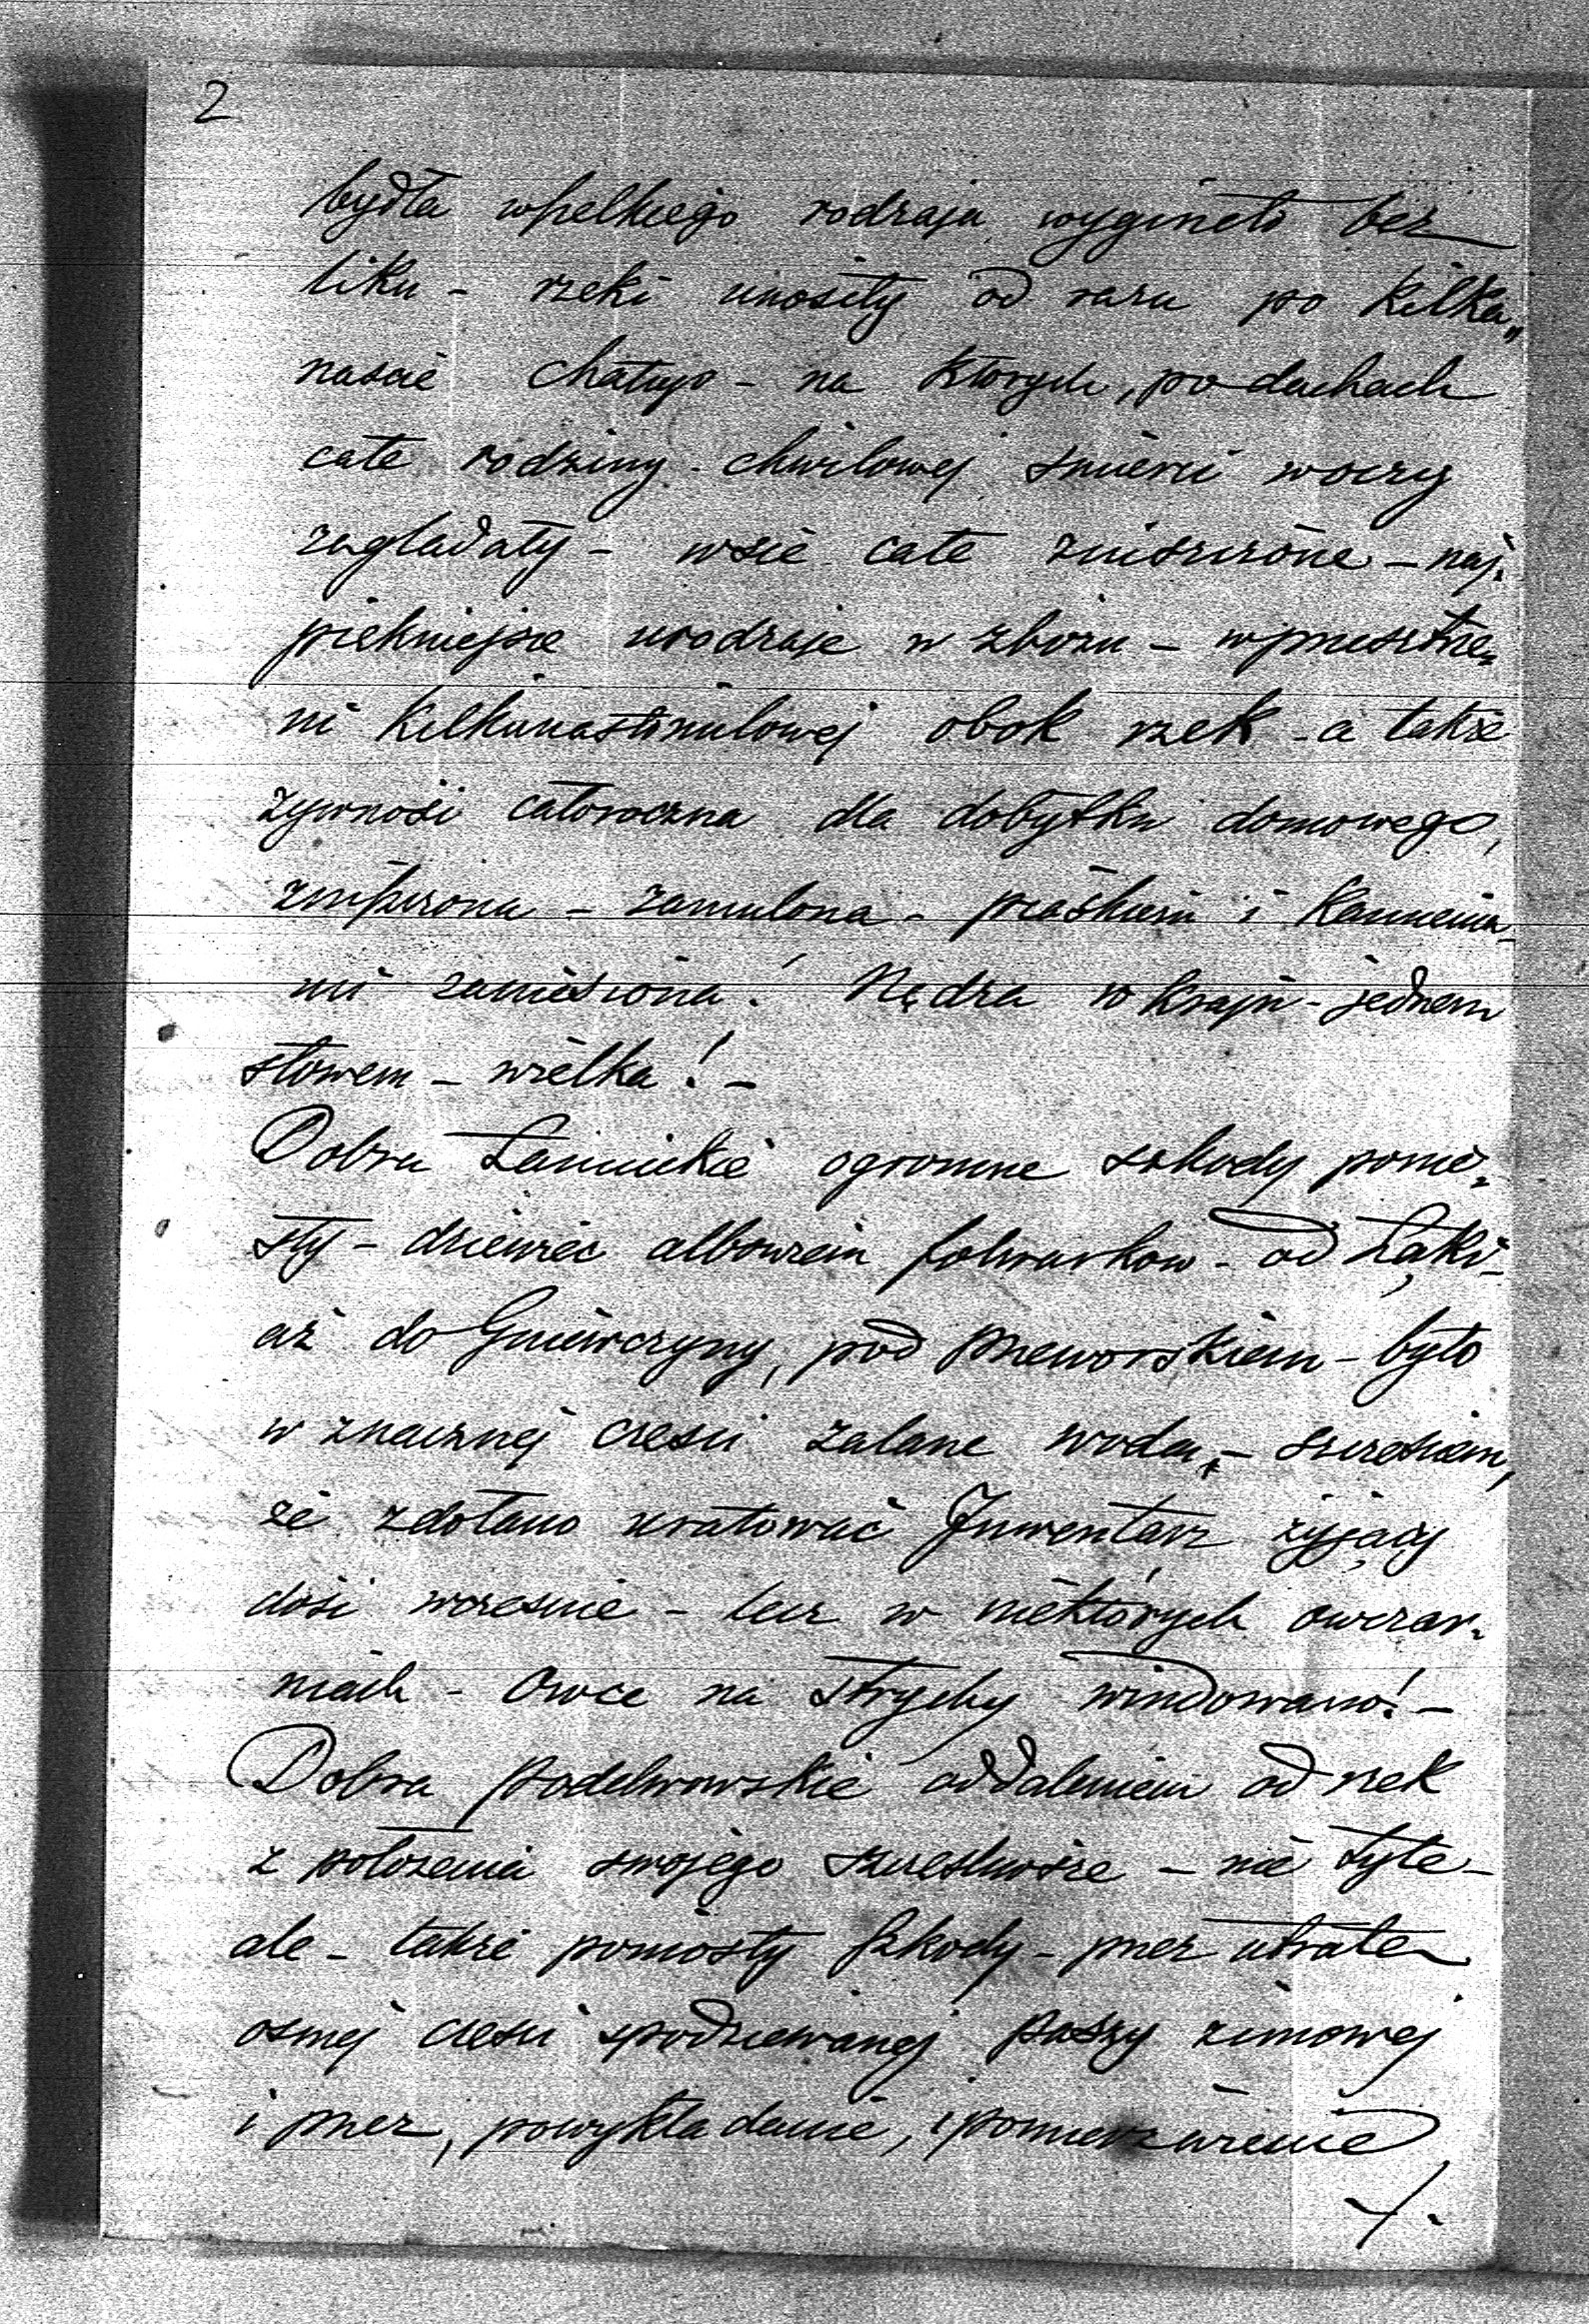 2
bydła wszelkiego rodzaju wyginęło bez
liku - rzeki unosiły od razu po kilka„
naście chałup - na których, po dachach
całe rodziny chwilowej śmierci w oczy
zaglądały - wsie całe zniszczone - naj-
piękniejsze urodzaje w zbożu - w przestrze-
ni kilkunastomilowej obok rzek - a także
żywność całoroczna dla dobytku domowego,
zniszczona - zamulona - piaskiem i kamienia-
mi zaniesiona! Nędza w kraju - jednem
słowem - wielka! -
Dobra Łańcuckie ogromne szkody ponio-
sły - dziewięć albowiem folwarków - od Łąki -
aż do Gniewczyny, pod Przeworskiem - było
w znacznej części zalane wodą, - szczęściem,
że zdołano uratować Inwentarz żyjący
dość wcześnie - lecz w niektórych owczar-
niach - owce na strychy windowano! -
Dobra podelwowskie oddaleniem od rzek
z położenia swojego szczęśliwsze - nie tyle -
ale - także poniosły szkody - przez utratę
ósmej części spodziewanej paszy zimowej
i przez, powykładanie, i